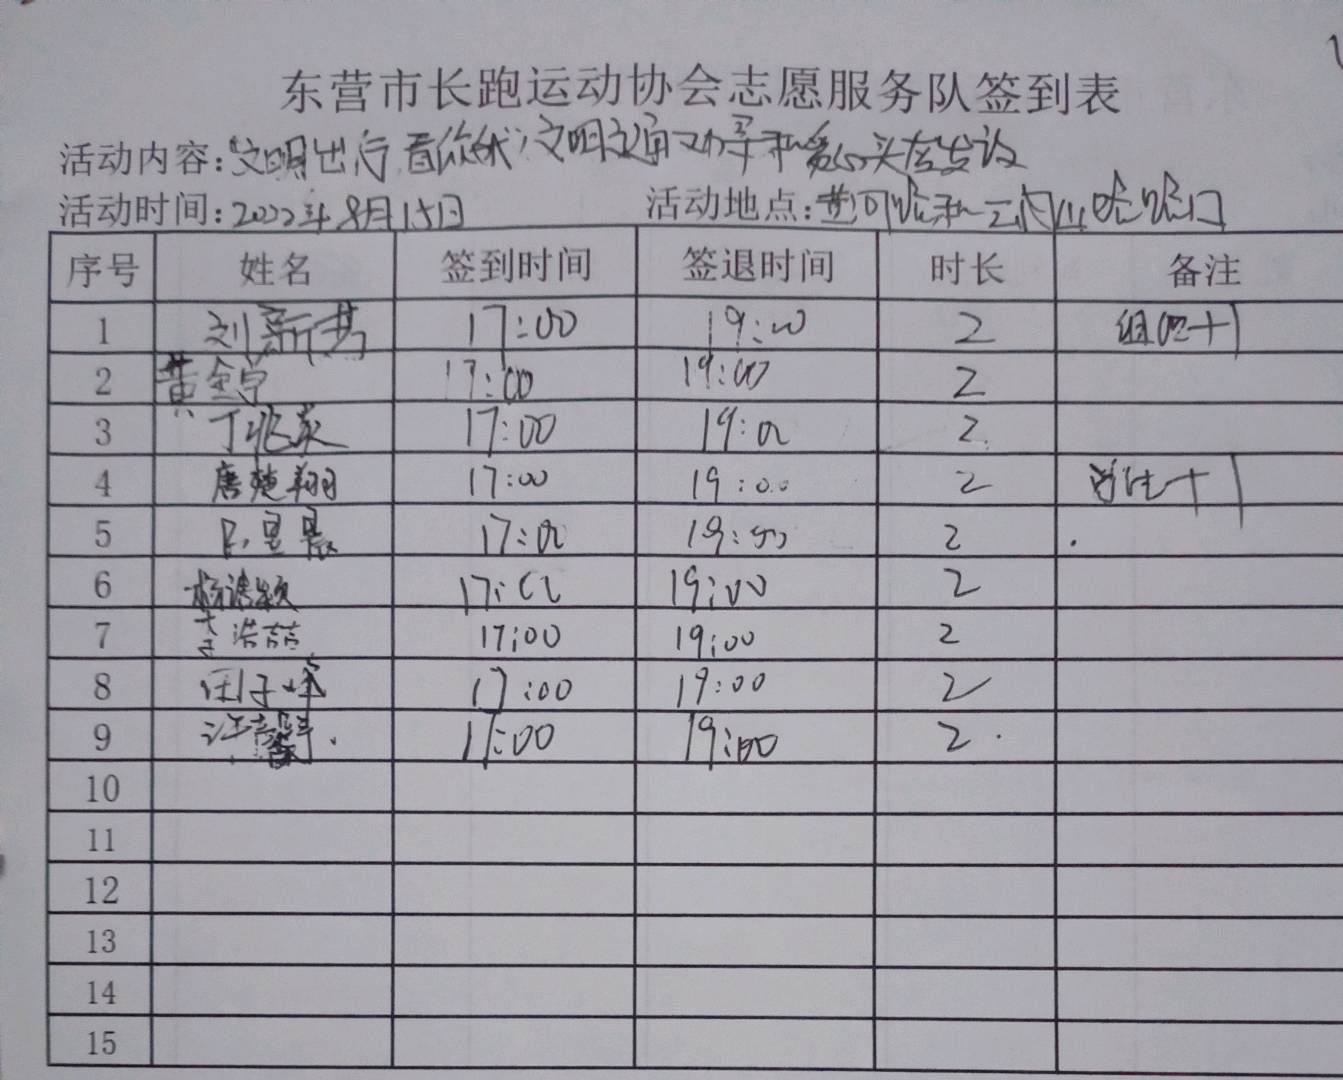 东营市长跑运动协会志愿服务队签到表
活动内容:"文明出行 看你我"文明交通
活动时间:2022年8月15日 活动地点:黄河路和
序号 姓名 签到时间 签退时间 时长 备注
1 刘新 17:00 19:00 2 组织+1
2 黄金 17:00 19:00 2
3 丁兆英 17:00 19:00 2
4 唐楚翔 17:00 19:00 2 +1
5 17:00 19:00 2
6 杨 17:00 19:00 2
7 李浩喆 17:00 19:00 2
8 任子 17:00 19:00 2
9 17:00 19:00 2
10
11
12
13
14
15